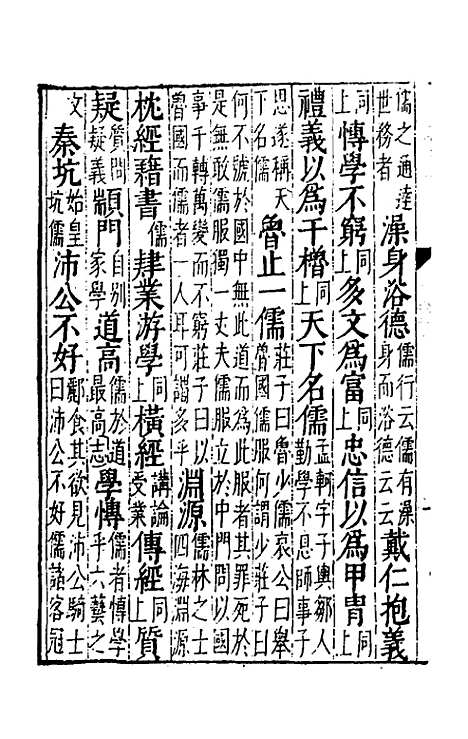 儒之通達世務者 澡身浴德儒行云儒有澡身而浴德云云戴仁抱義
同上博學不窮同上多文爲富同上忠信以爲甲胄同上
禮義以爲干櫓同上天下名儒孟軻字子輿鄒人勤學不息師事子
思遂稱天下名儒 魯止一儒莊子曰魯少儒哀公曰舉魯國儒服何謂少莊子曰
何不號於國中無此道而爲此服者其罪死於是無敢儒服獨一丈夫儒服立於中門問以國
事千轉萬變而不窮莊子曰以魯國而儒者一人耳可謂多乎 淵源儒林之士四海淵源
枕經藉書儒肆業游學同上橫經講論受業傳經同上質
疑質問疑義顓門自别家學道高儒於道最高志學博儒者博學乎六藝之
文 秦坑始皇坑儒沛公不好酈食其欲見沛公騎士曰沛公不好儒諸客冠